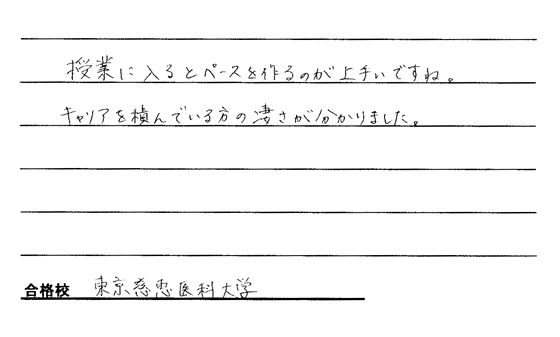 授業に入るとペースを作るのが上手いですね。
キャリアを積んでいる方の凄さが分かりました。
合格校 東京慈恵医科大学